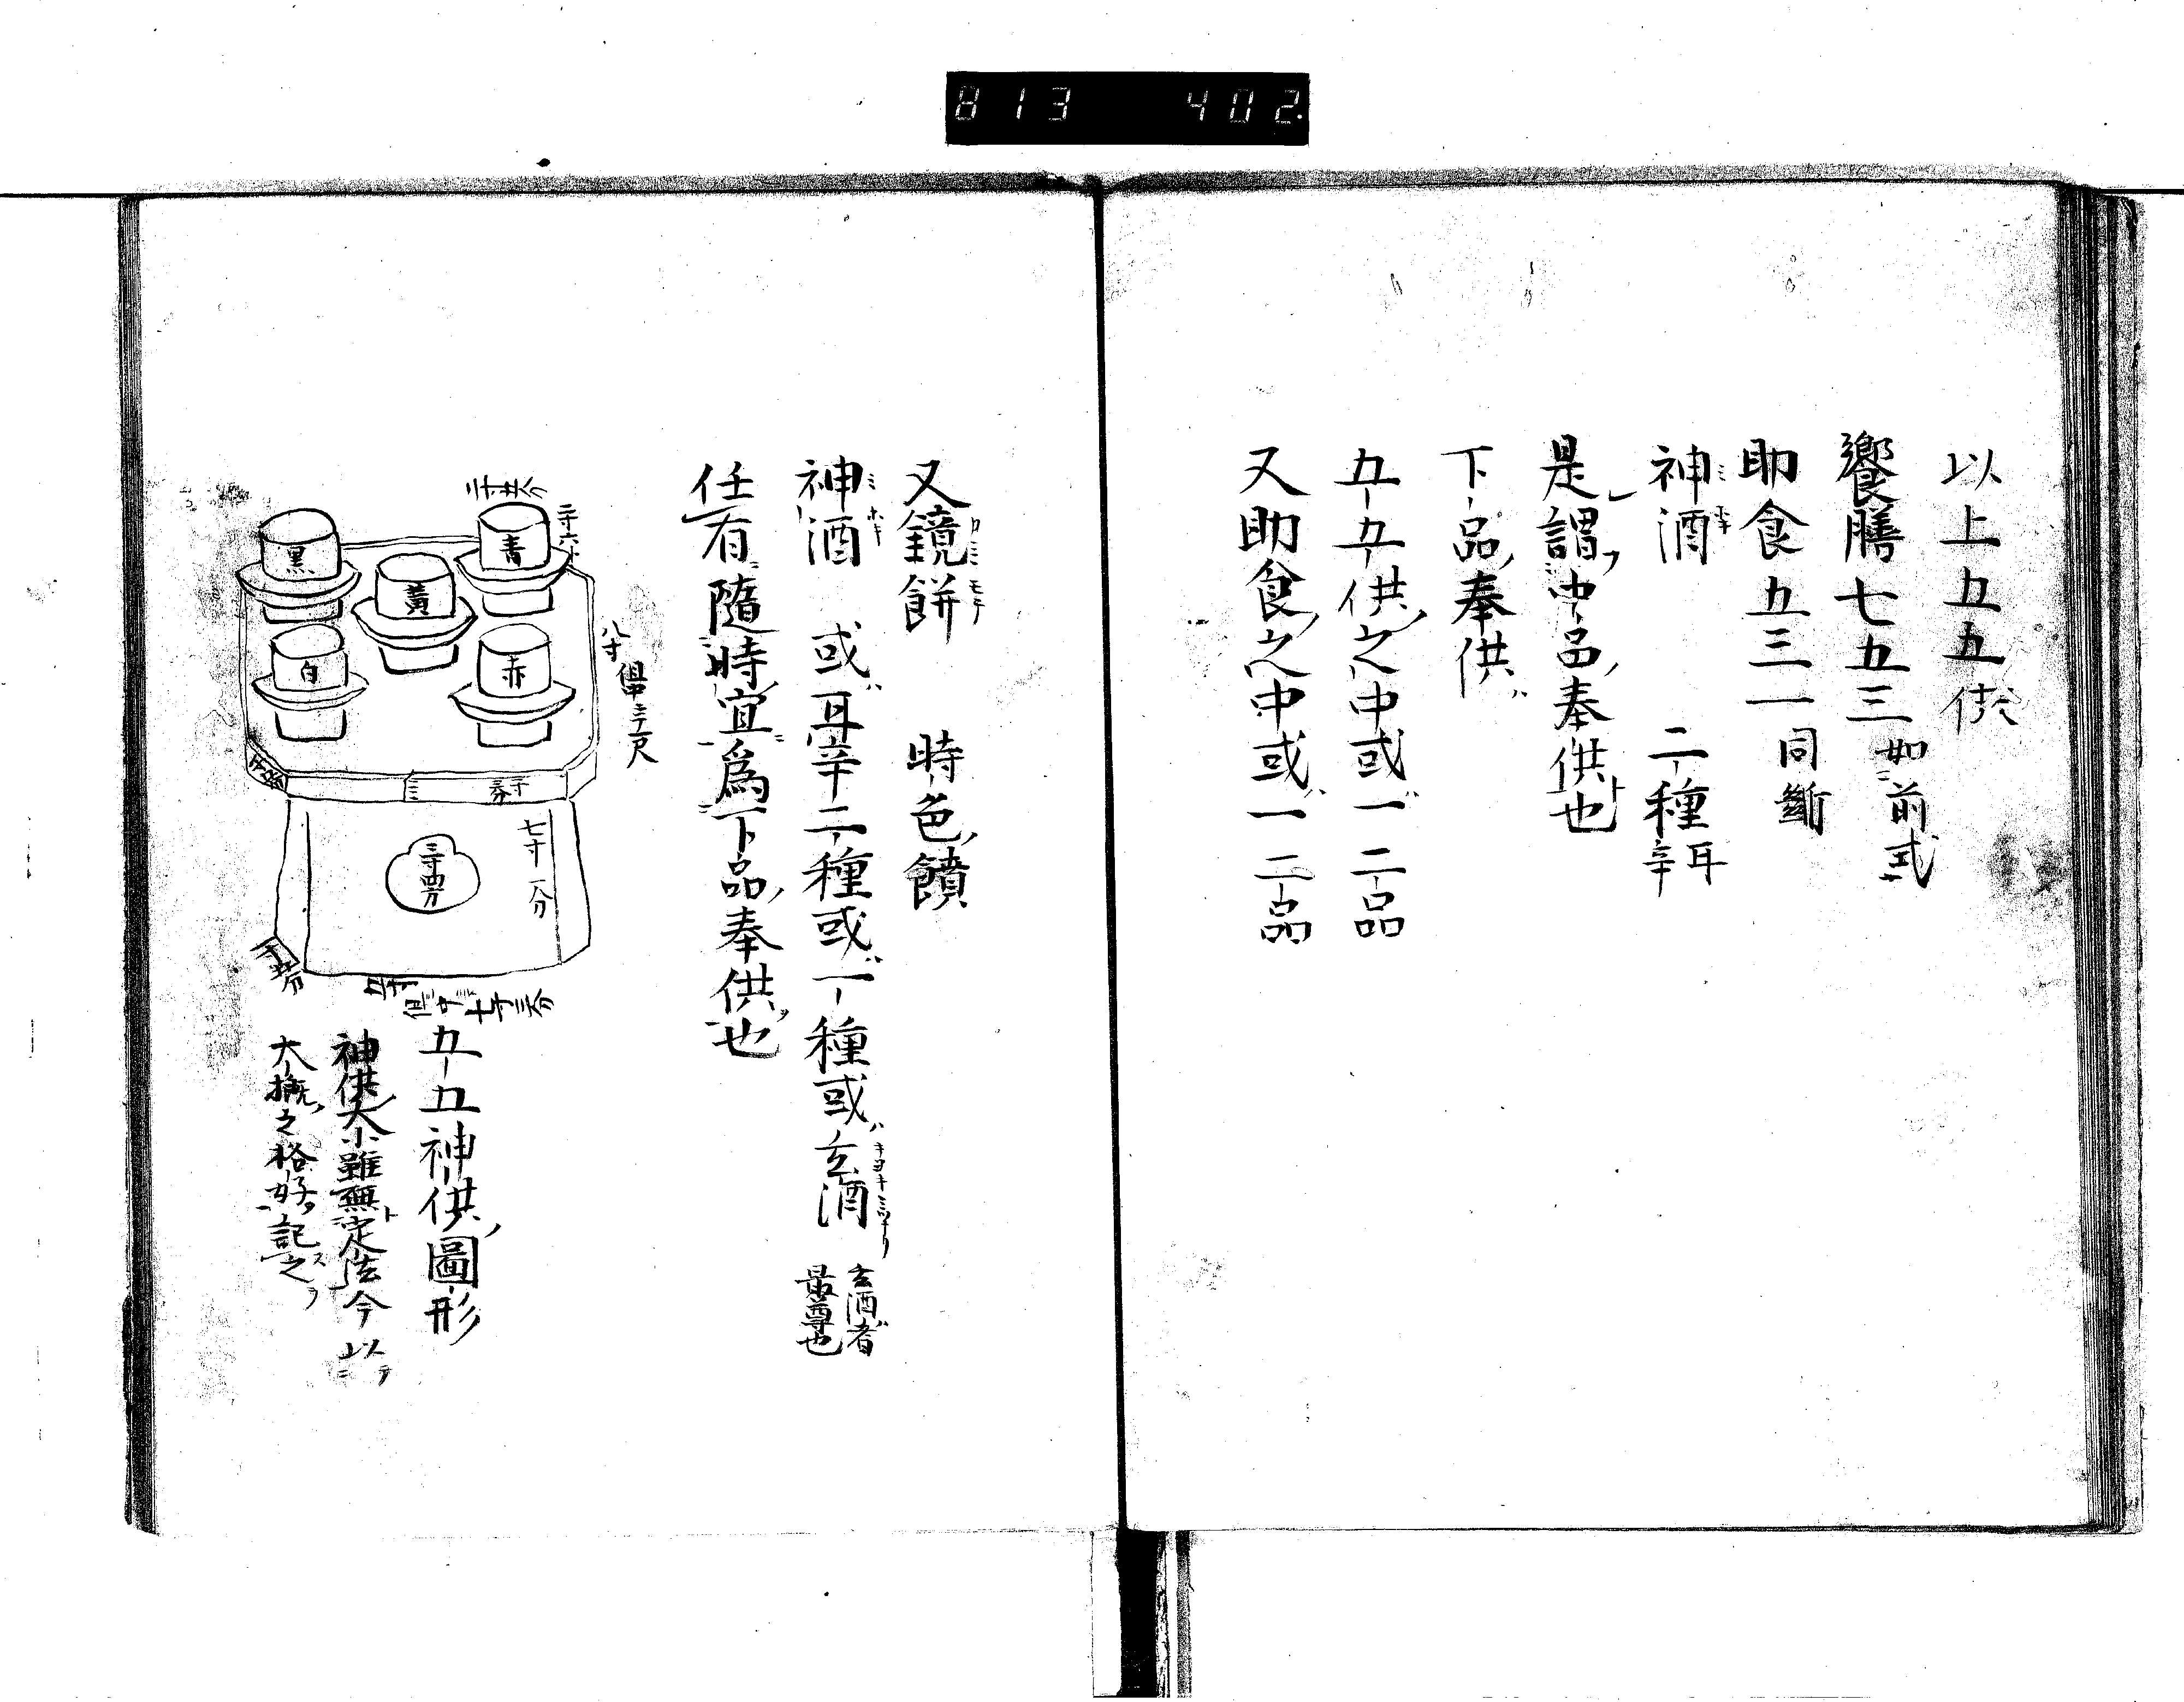 813 402.
以上五五供
饗膳七五三 如前式
助食五三一 同断
神酒 二種 耳辛
是謂中品奉供也
下品奉供
五五供之中或一二品
又助食之中或一二品
又鏡餅 時色饋
神酒 或耳辛二種或一種或玄酒 玄酒者最尊也
任有隨時宜為下品奉供也
青
黄
黒
赤
白
七寸一分
三寸四分
五五神供圖形
神供大小雖無定法今以
大概之格好記之